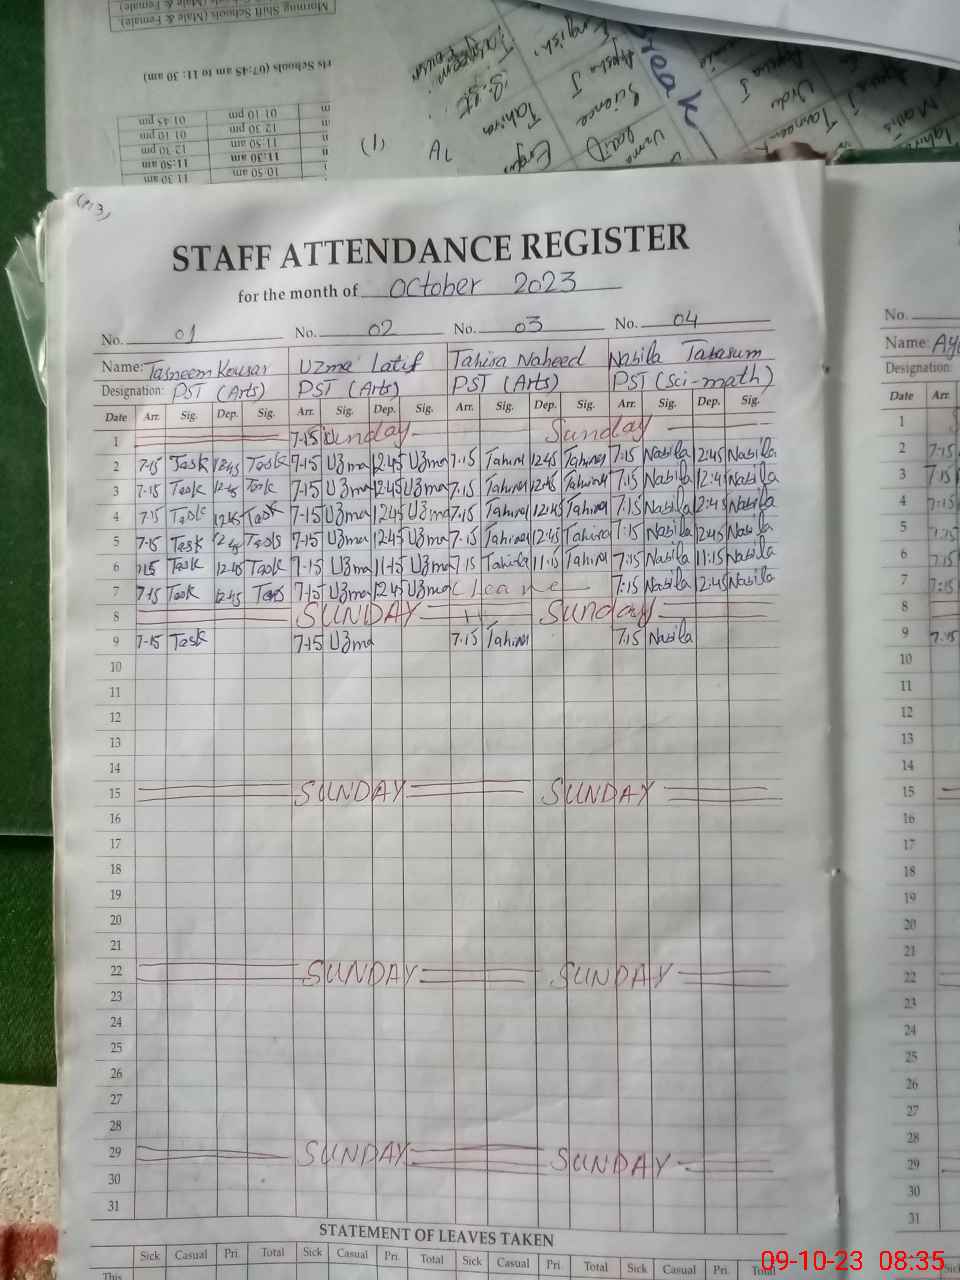 Morning Shift Schools (Male & Female)
rls Schools (07:45 am to 11: 30 am)
01 10 pm 01 45 pm
12 30 pm 01 10 pm
11.50 am 12 10 pm
11.30 am 11:50 am
10 50 am 11 30 am
(1) AL
Tahira
English
Ayesha J
Science
Break
Urdu
Maths
STAFF ATTENDANCE REGISTER
for the month of October 2023
No. 01 No. 02 No. 03 No. 04
Name: Tasneem Kousar Uzma Latif Tahira Naheed Nabila Tabasum
Designation: PST (Arts) PST (Arts) PST (Arts) PST (Sci-math)
Date Arr. Sig. Dep. Sig. Arr. Sig. Dep. Sig. Arr. Sig. Dep. Sig. Arr. Sig. Dep. Sig.
1 7-15 Sunday Sunday
2 7-15 Task 12:45 Task 7-15 Uzma 12:45 Uzma 7-15 Tahira 12:45 Tahira 7:15 Nabila 12:45 Nabila
3 7-15 Task 12-45 Task 7-15 Uzma 12:45 Uzma 7-15 Tahira 12:45 Tahira 7:15 Nabila 12:45 Nabila
4 7:15 Task 12:45 Task 7-15 Uzma 12:45 Uzma 7-15 Tahira 12:45 Tahira 7:15 Nabila 12:45 Nabila
5 7-15 Task 12:45 Task 7-15 Uzma 12:45 Uzma 7-15 Tahira 12:45 Tahira 7:15 Nabila 12:45 Nabila
6 7:15 Task 12:45 Task 7-15 Uzma 11-15 Uzma 7:15 Tahira 11:15 Tahira 7:15 Nabila 11:15 Nabila
7 7:15 Task 12:45 Task 7-15 Uzma 12:45 Uzma C leave 7:15 Nabila 12:45 Nabila
8 SUNDAY Sunday
9 7-15 Task 7-15 Uzma 7:15 Tahira 7:15 Nabila
10
11
12
13
14
15 SUNDAY SUNDAY
16
17
18
19
20
21
22 SUNDAY SUNDAY
23
24
25
26
27
28
29 SUNDAY SUNDAY
30
31
STATEMENT OF LEAVES TAKEN
Sick Casual Pri. Total Sick Casual Pri. Total Sick Casual Pri. Total Sick Casual Pri. Total
This
No.
Name:
Designation:
Date Arr.
1
2 7-15
3 7:15
4 7:15
5 7:15
6 7:15
7 7:15
8
9 7:15
10
11
12
13
14
15
16
17
18
19
20
21
22
23
24
25
26
27
28
29
30
31
09-10-23 08:35